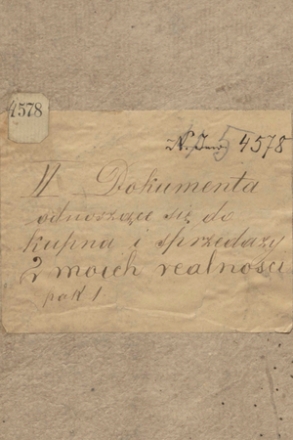 4578
N. Inw. 4578
V Dokumenta
odnoszące się do
kupna i sprzedaży
2 moich realności
pak 1.